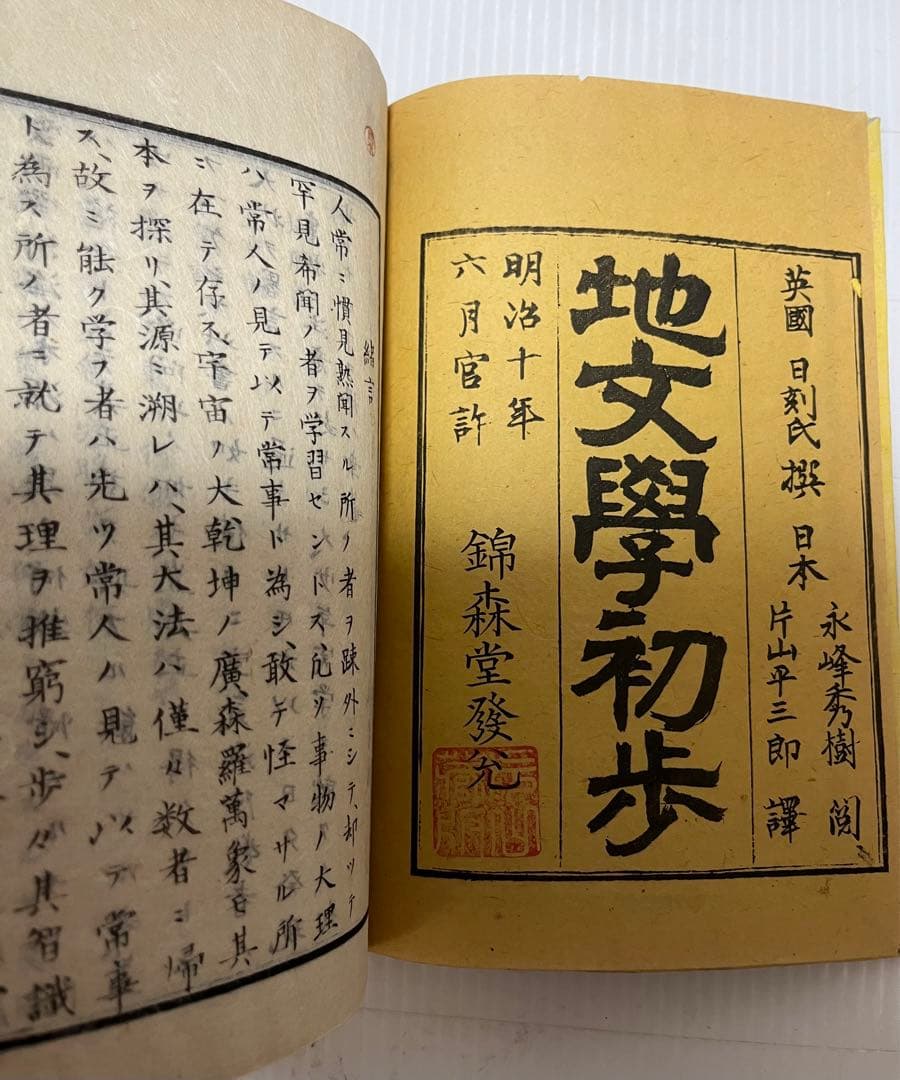 英國 日刻氏 撰 日本
永峰秀樹 閲
片山平三郎 譯
地文學初歩
明治十年
六月官許
錦森堂發兌
緒言
人常ニ慣見熟聞スル所ノ者ヲ疎外ニシテ、却ツテ
罕見希聞ノ者ヲ学習センドス、凡ソ事物ノ大理
ハ常人ノ見テ以テ常事ト為シ、敢テ怪マザル所
ニ在テ存ス、宇宙ノ大乾坤ノ廣、森羅萬象吝其
本ヲ探リ、其源ニ溯レハ、其大法ハ僅々数者ニ帰
ス、故ニ能ク学フ者ハ先ツ常人ノ見テ以テ常事
ト為ス所ノ者ニ就テ其理ヲ推窮シ、歩々其智識